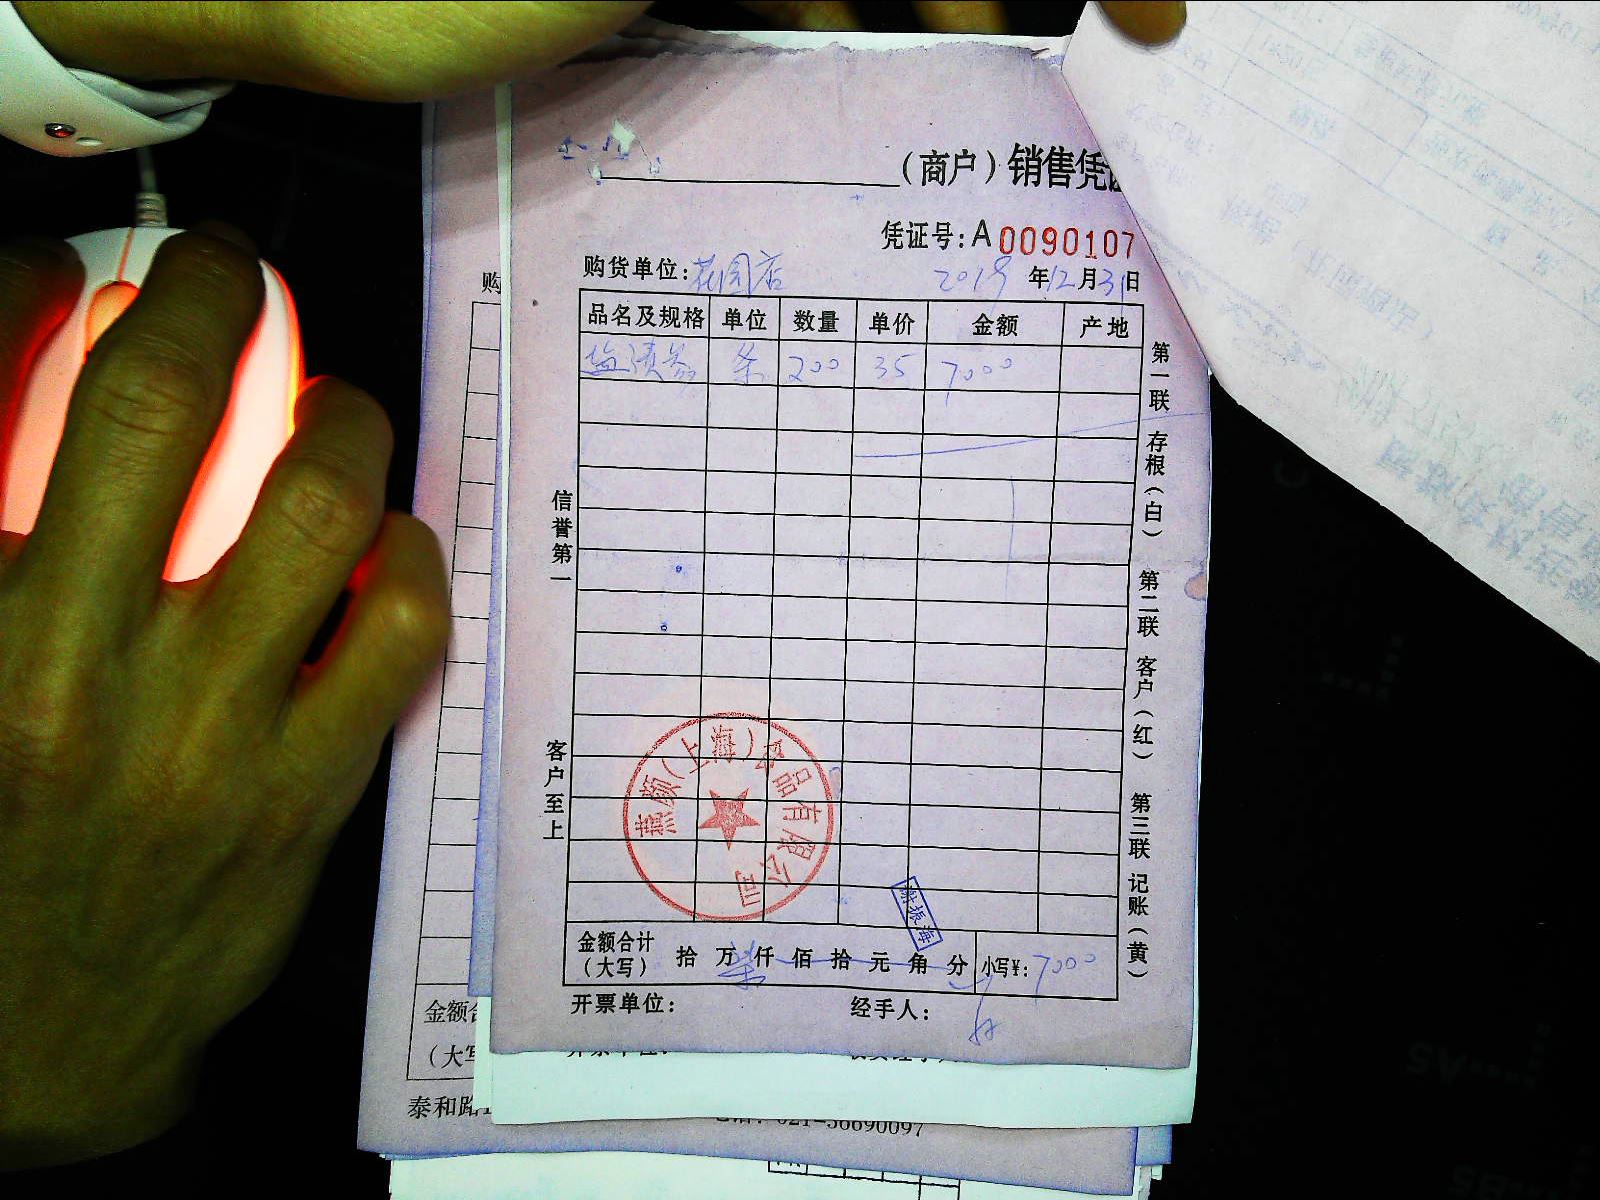 (商户)销售凭
凭证号:A0090107
购货单位:花园店 2019年12月31日
品名及规格 单位 数量 单价 金额 产地
条 200 35 7000
第一联 存根(白) 第二联 客户(红) 第三联 记账(黄)
信誉第一 客户至上
颜(上海)食品有限公司
谢振海
金额合计(大写) 拾 万 柒 仟 佰 拾 元 角 分 小写¥:7000
开票单位: 经手人:
购
金额合
(大写
泰和路
021-56690097